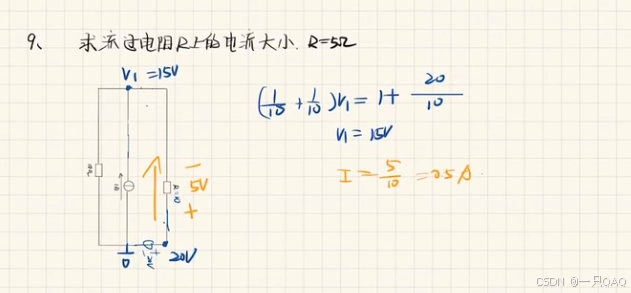 9、 求流过电阻R上的电流大小. R=5Ω
V₁ =15V
(1/10 + 1/10)V₁ = 1+ 20/10
V₁ = 15V
I = 5/10 = 0.5 A.
−
5V
+
20V
CSDN @一只QAQ